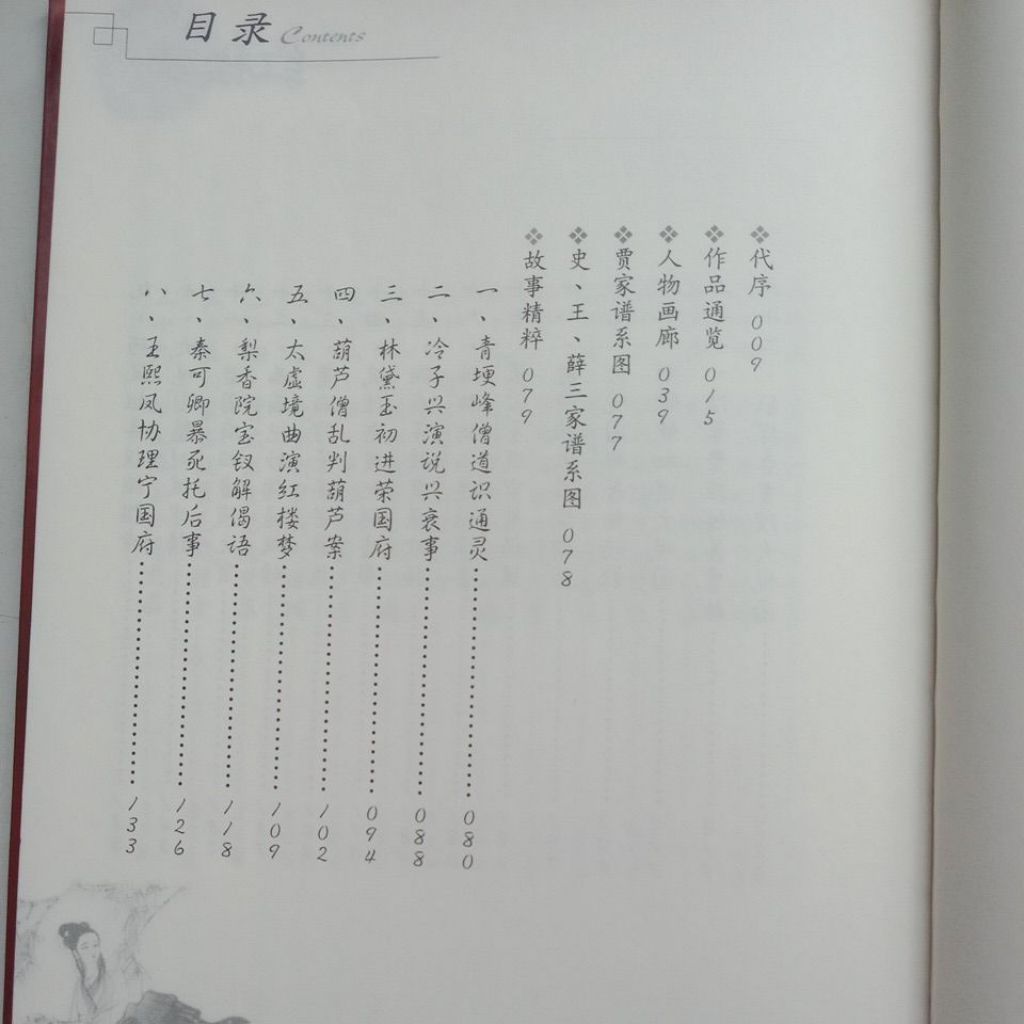 目录 Contents
❖代序 009
❖作品通览 015
❖人物画廊 039
❖贾家谱系图 077
❖史、王、薛三家谱系图 078
❖故事精粹 079
一、青埂峰僧道识通灵……………………080
二、冷子兴演说兴衰事……………………088
三、林黛玉初进荣国府……………………094
四、葫芦僧乱判葫芦案……………………102
五、太虚境曲演红楼梦……………………109
六、梨香院宝钗解偈语……………………118
七、秦可卿暴死托后事……………………126
八、王熙凤协理宁国府……………………133